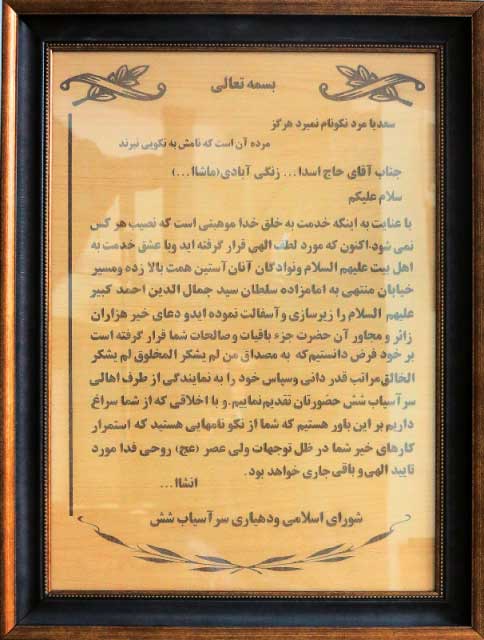 بسمه تعالی
سعدیا مرد نکونام نمیرد هرگز
مرده آن است که نامش به نکویی نبرند
جناب آقای حاج اسدا... زنگی آبادی(ماشاا...)
سلام علیکم
با عنایت به اینکه خدمت به خلق خدا موهبتی است که نصیب هر کس
نمی شود.اکنون که مورد لطف الهی قرار گرفته اید وبا عشق خدمت به
اهل بیت علیهم السلام ونوادگان آنان آستین همت بالا زده ومسیر
خیابان منتهی به امامزاده سلطان سید جمال الدین احمد کبیر
علیهم السلام را زیرسازی و آسفالت نموده ایدو دعای خیر هزاران
زائر و مجاور آن حضرت جزء باقیات و صالحات شما قرار گرفته است
بر خود فرض دانستیم که به مصداق من لم یشکر المخلوق لم یشکر
الخالق مراتب قدر دانی وسپاس خود را به نمایندگی از طرف اهالی
سرآسیاب شش حضورتان تقدیم نماییم.و با اخلاقی که از شما سراغ
داریم بر این باور هستیم که شما از نکو نامهایی هستید که استمرار
کارهای خیر شما در ظل توجهات ولی عصر (عج) روحی فدا مورد
تایید الهی و باقی جاری خواهد بود.
انشاا...
شورای اسلامی ودهیاری سرآسیاب شش